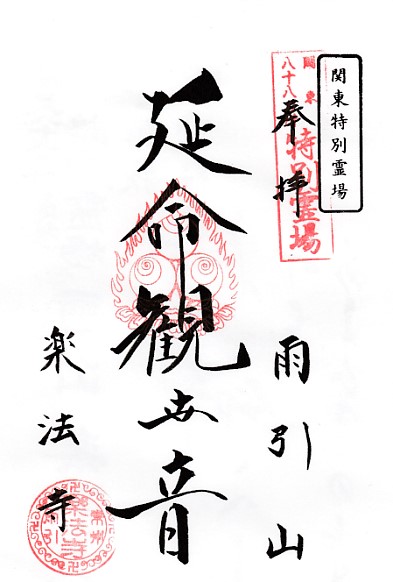 関東特別霊場
関東
八十八
特別霊場
奉拝
雨引山
延命観世音
楽法寺